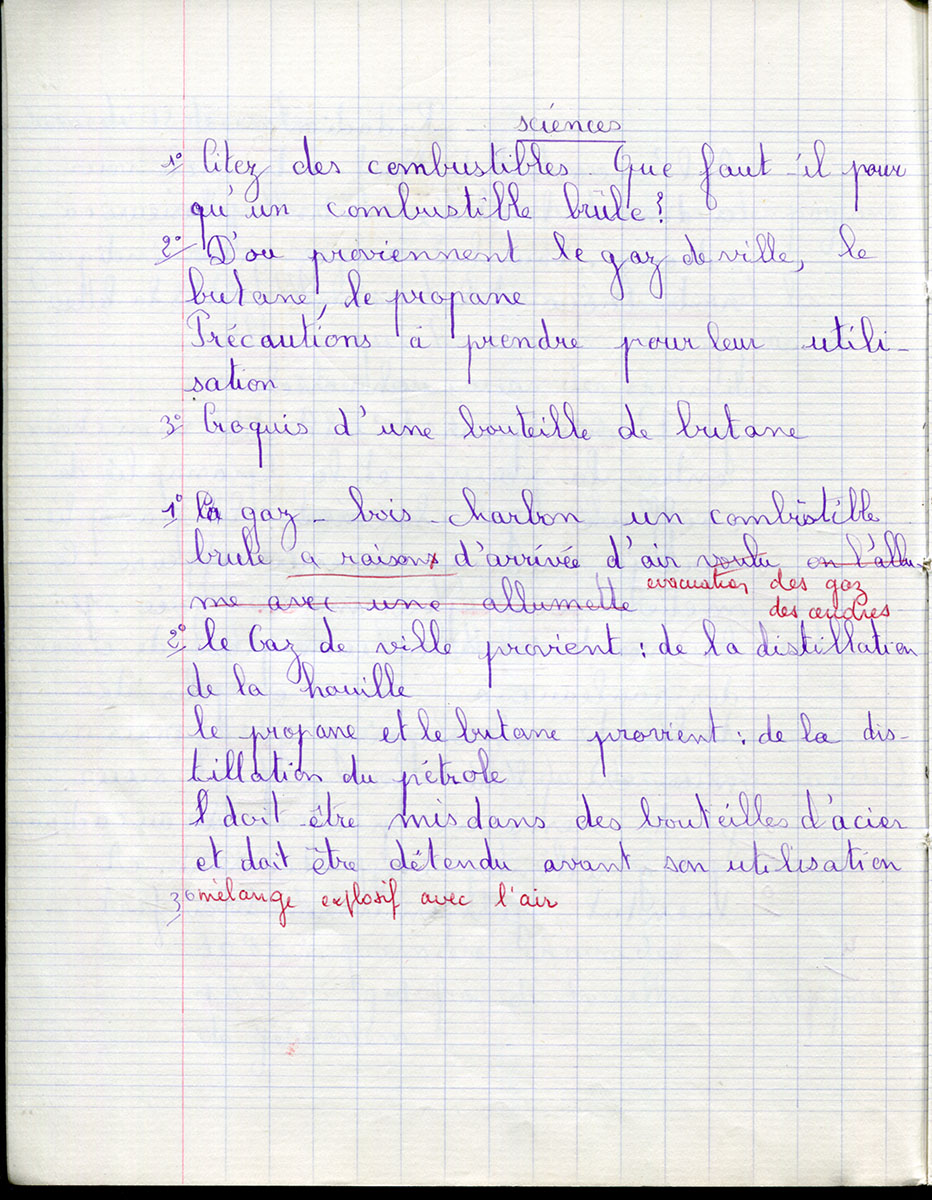 sciences
1° Citez des combustibles. Que faut-il pour
qu'un combustible brûle ?
2° D'ou proviennent le gaz de ville, le
butane, le propane
Précautions à prendre pour leur utili-
sation
3° Croquis d'une bouteille de butane
1° la gaz - bois - charbon un combustible
brule a raison d'arrivée d'air voulu on l'allu-
me avec une allumette evacuation des gaz
des cendres
2° le Gaz de ville provient : de la distillation
de la houille
le propane et le butane provient : de la dis-
tillation du pétrole
Il doit être mis dans des bouteilles d'acier
et doit être détendu avant son utilisation
3° mélange explosif avec l'air